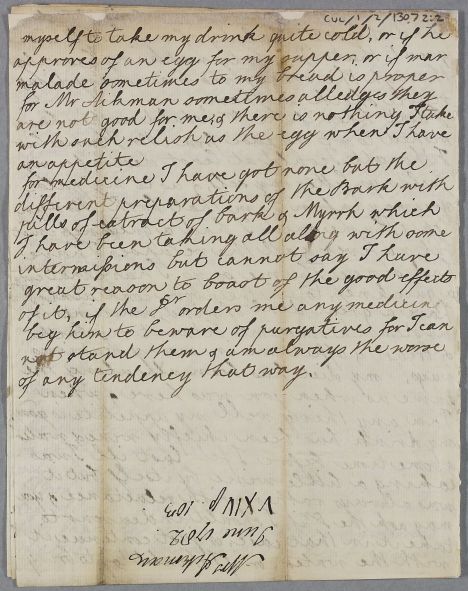 CUL/1/2/1307 2:2
myself to take my drink quite cold, or if he
approves of an egg for my supper, or if mar
malade sometimes to my bread is proper
for Mr Aikman sometimes alledges they
are not good for me, & there is nothing I take
with such relish as the egg when I have
an appetite
for medicine I have got none but the
different preparations of the Bark with
pills of extract of bark & Myrrh which
I have been taking all along with some
intermissions but cannot say I have
great reason to boast of the good effects
of it, if the Dr orders me any medicine
beg him to beware of purgatives for I can
not stand them & am always the worse
of any tendency that way.
Mrs
June 1782
V XIV p. 103